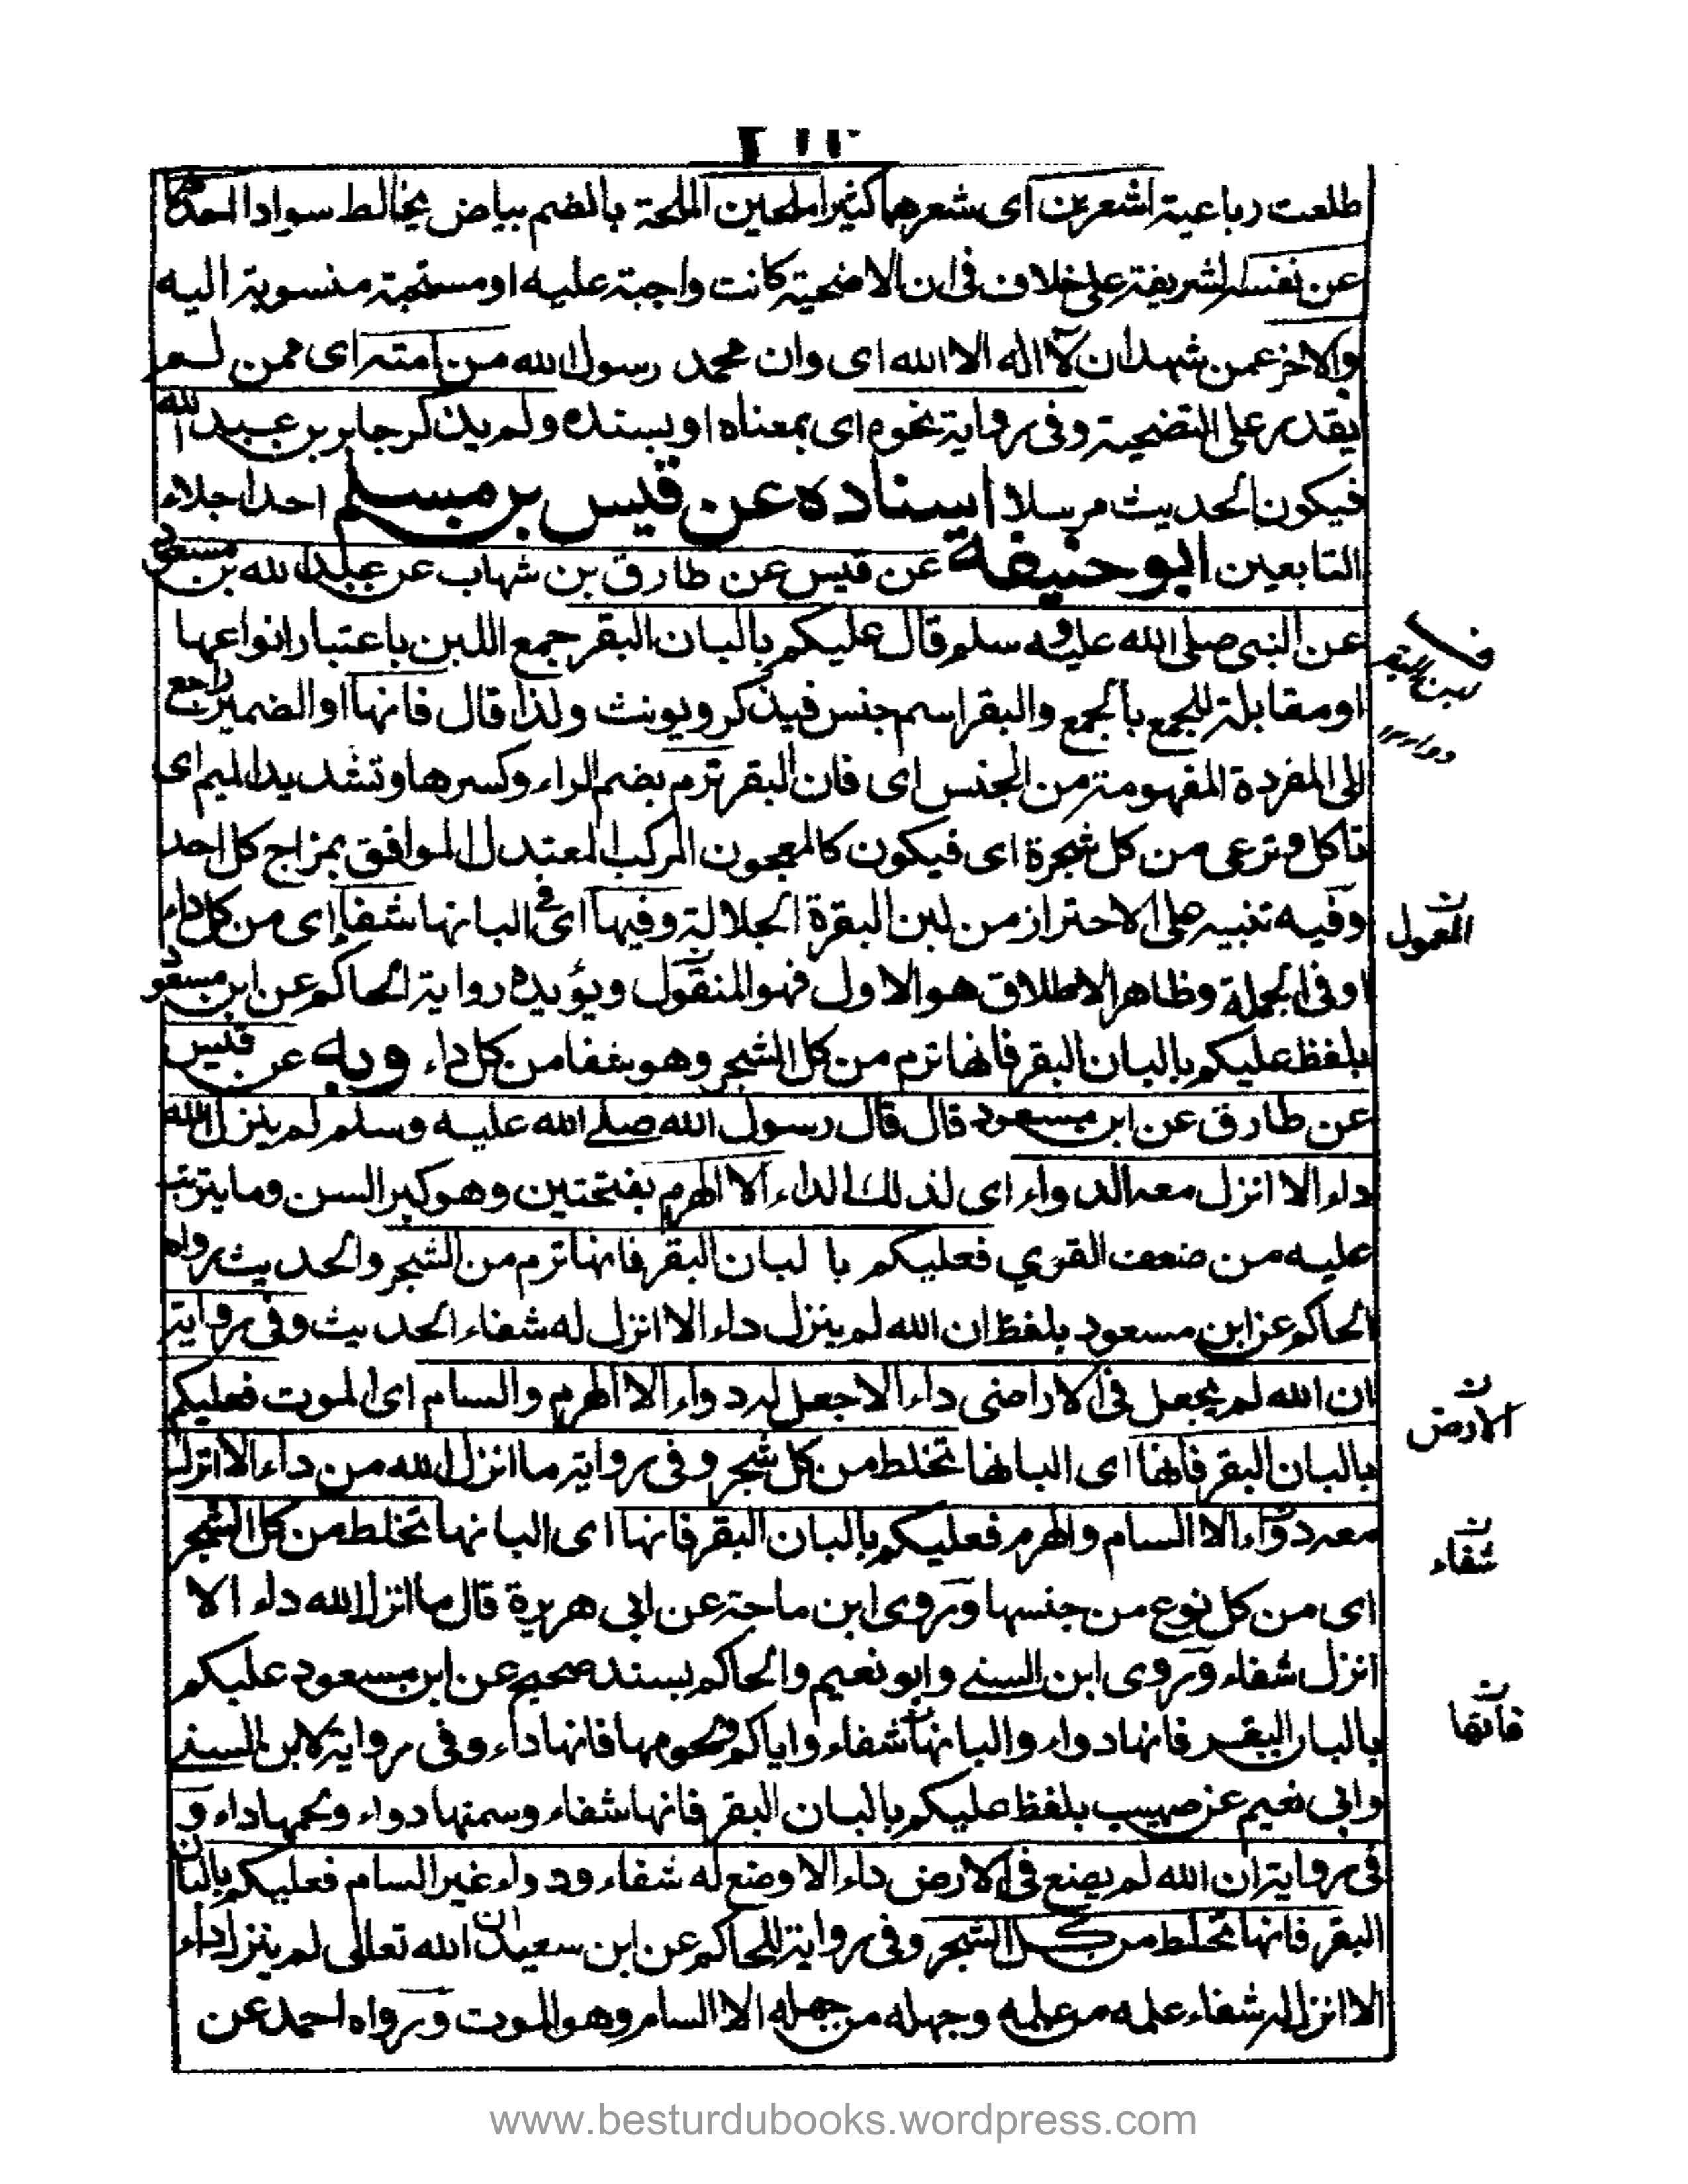 طلعت رباعیة اشعرین ای شعرهما کثیر املحین الملحة بالضم بیاض یخالط سوادا احدهما
عن نفسه الشریفة علی خلاف فی ان الاضحیة کانت واجبة علیه او مستحبة منسوبة الیه
والاخر عمن شهد ان لا اله الا الله ای وان محمد رسول الله من امته ای ممن لم
یقدر علی التضحیة وفی روایة نحوه ای بمعناه او بسنده ولم یذکر جابر بن عبد الله
فیکون الحدیث مرسلا اسناده عن قیس بن مسلم احد اجلاء
التابعین ابو حنیفة عن قیس عن طارق بن شهاب عن عبد الله بن مسعود
عن النبی صلی الله علیه وسلم قال علیکم بالبان البقر جمع اللبن باعتبار انواعها
او مقابلة للجمع بالجمع والبقر اسم جنس فیذکر ویونث ولذا قال فانها او الضمیر راجع
الی المفردة المفهومة من الجنس ای فان البقر ترم بضم الراء وکسرها وتشدید المیم ای
تاکل وترعی من کل شجرة ای فیکون کالمعجون المرکب المعتدل الموافق بمزاج کل احد
وفیه تنبیه علی الاحتراز من لبن البقرة الجلالة وفیها ای فی البانها شفاء ای من کل داء
او فی الجملة وظاهر الاطلاق هو الاول فهو المنقول ویؤیده روایة الحاکم عن ابن مسعود
بلفظ علیکم بالبان البقر فانها ترم من کل الشجر وهو شفا من کل داء وبه عن قیس
عن طارق عن ابن مسعود قال قال رسول الله صلے الله علیه وسلم لم ینزل الله
داء الا انزل معه الدواء ای لذلك الداء الا الهرم بفتحتین وهو کبر السن وما یترتب
علیه من ضعف القوی فعلیکم با لبان البقر فانها ترم من الشجر والحدیث رواه
الحاکم عن ابن مسعود بلفظ ان الله لم ینزل داء الا انزل له شفاء الحدیث وفی روایة
ان الله لم یجعل فی الاراضی داء الا جعل له دواء الا الهرم والسام ای الموت فعلیکم
بالبان البقر فانها ای البانها تخلط من کل شجر وفی روایة ما انزل الله من داء الا انزل
معه دواء الا السام والهرم فعلیکم بالبان البقر فانها ای البانها تخلط من کل الشجر
ای من کل نوع من جنسها وروی ابن ماجة عن ابی هریرة قال ما انزل الله داء الا
انزل شفاء وروی ابن السنے وابو نعیم والحاکم بسند صحیح عن ابن مسعود علیکم
بالبان البقر فانها دواء والبانها شفاء وایاکم ولحومها فانها داء وفی روایة لابن السنے
وابی نعیم عن صهیب بلفظ علیکم بالبان البقر فانها شفاء وسمنها دواء ولحمها داء و
فی روایة ان الله لم یضع فی الارض داء الا وضع له شفاء ودواء غیر السام فعلیکم بالبان
البقر فانها تخلط من کل الشجر وفی روایة للحاکم عن ابن سعید ان الله تعالی لم ینزل داء
الا انزل له شفاء علمه من علمه وجهله من جهله الا السام وهو الموت ورواه احمد عن
ف
لبن البقر
دواء
ن
المعمول
ن
الارض
ن
شفاء
ن
فانها
www.besturdubooks.wordpress.com